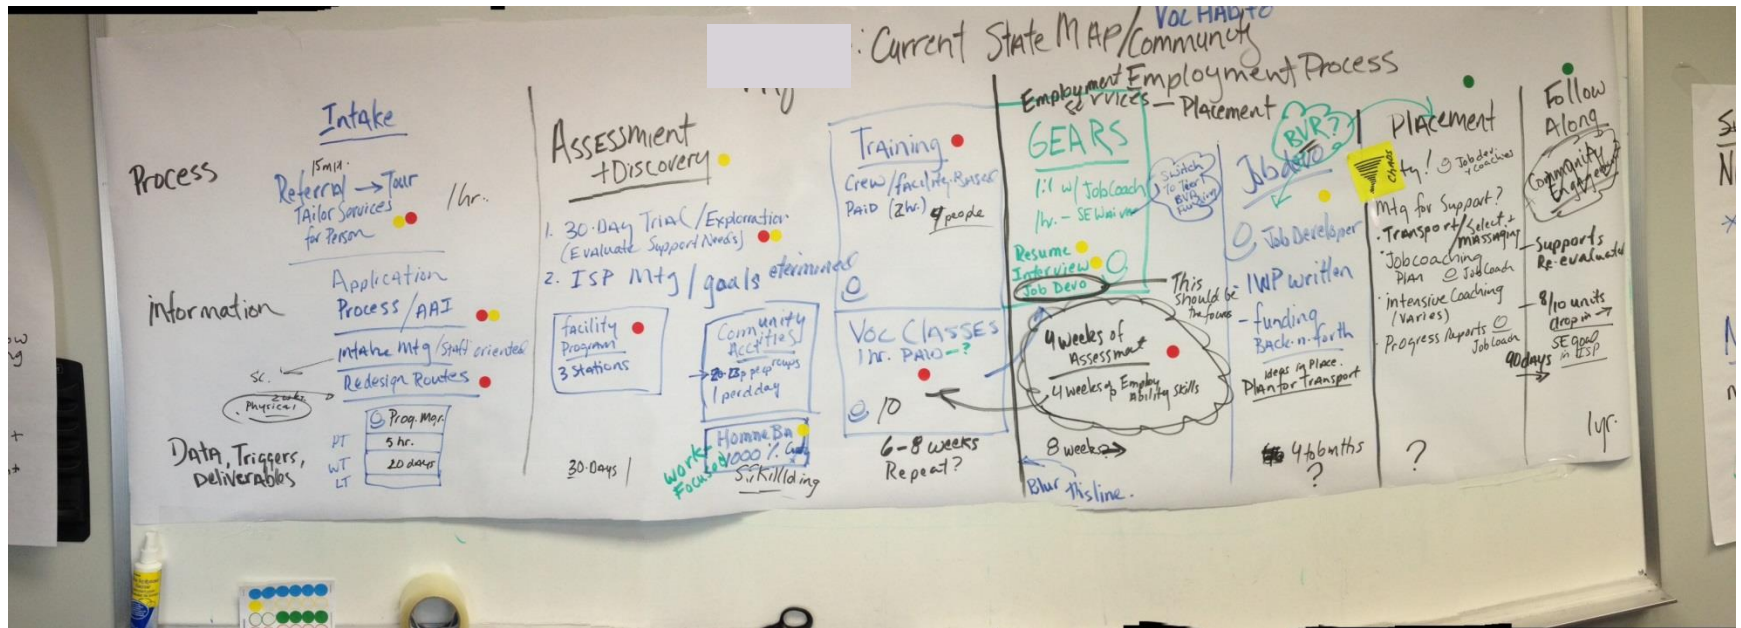 : Current State Map/Community
Voc Hab
Employment Process
Process
Information
Data, Triggers,
Deliverables
Intake
15 min.
Referral → Tour
Tailor Services
for Person
1hr.
Application
Process/AAI
Intake Mtg/Staff oriented
Redesign Routes
SC.
Physical
Prog. Mgr.
PT 5 hr.
WT 20 days
LT
Assessment
+Discovery
1. 30-Day Trial/Exploration
(Evaluate Support Needs)
2. ISP Mtg/goals
facility
Program
3 Stations
Community
1 per day
30-Days
Work
Focused
Training
Crew/facility-Based
Paid (2hr.)
4 people
Voc Classes
1 hr. Paid - ?
10
6-8 weeks
Repeat?
Employment
Services — Placement
GEARS
1:1 w/ Job Coach
1hr. - SE Waiver
Resume
Interview
Job Devo
This
should be
the focus
Switch
BVR
Funding
4 weeks of
Assessment
4 weeks of Employ
Ability Skills
8 weeks →
Blur this line.
BVR?
Job devo
Job Developer
- IWP written
- funding
Back-n-forth
ideas in Place.
Plan for Transport
?
Placement
Chaos
ty!
Job dev.
coaches
Mtg for Support?
· Transport/Select +
Massaging
· Job coaching
Plan
Job Coach
· intensive Coaching
(Varies)
· Progress Reports
Job Coach
?
Follow
Along
Community
- Supports
Re-evaluated
- 8/10 units
drop in →
SE goal
in ISP
90 days
→
1yr.